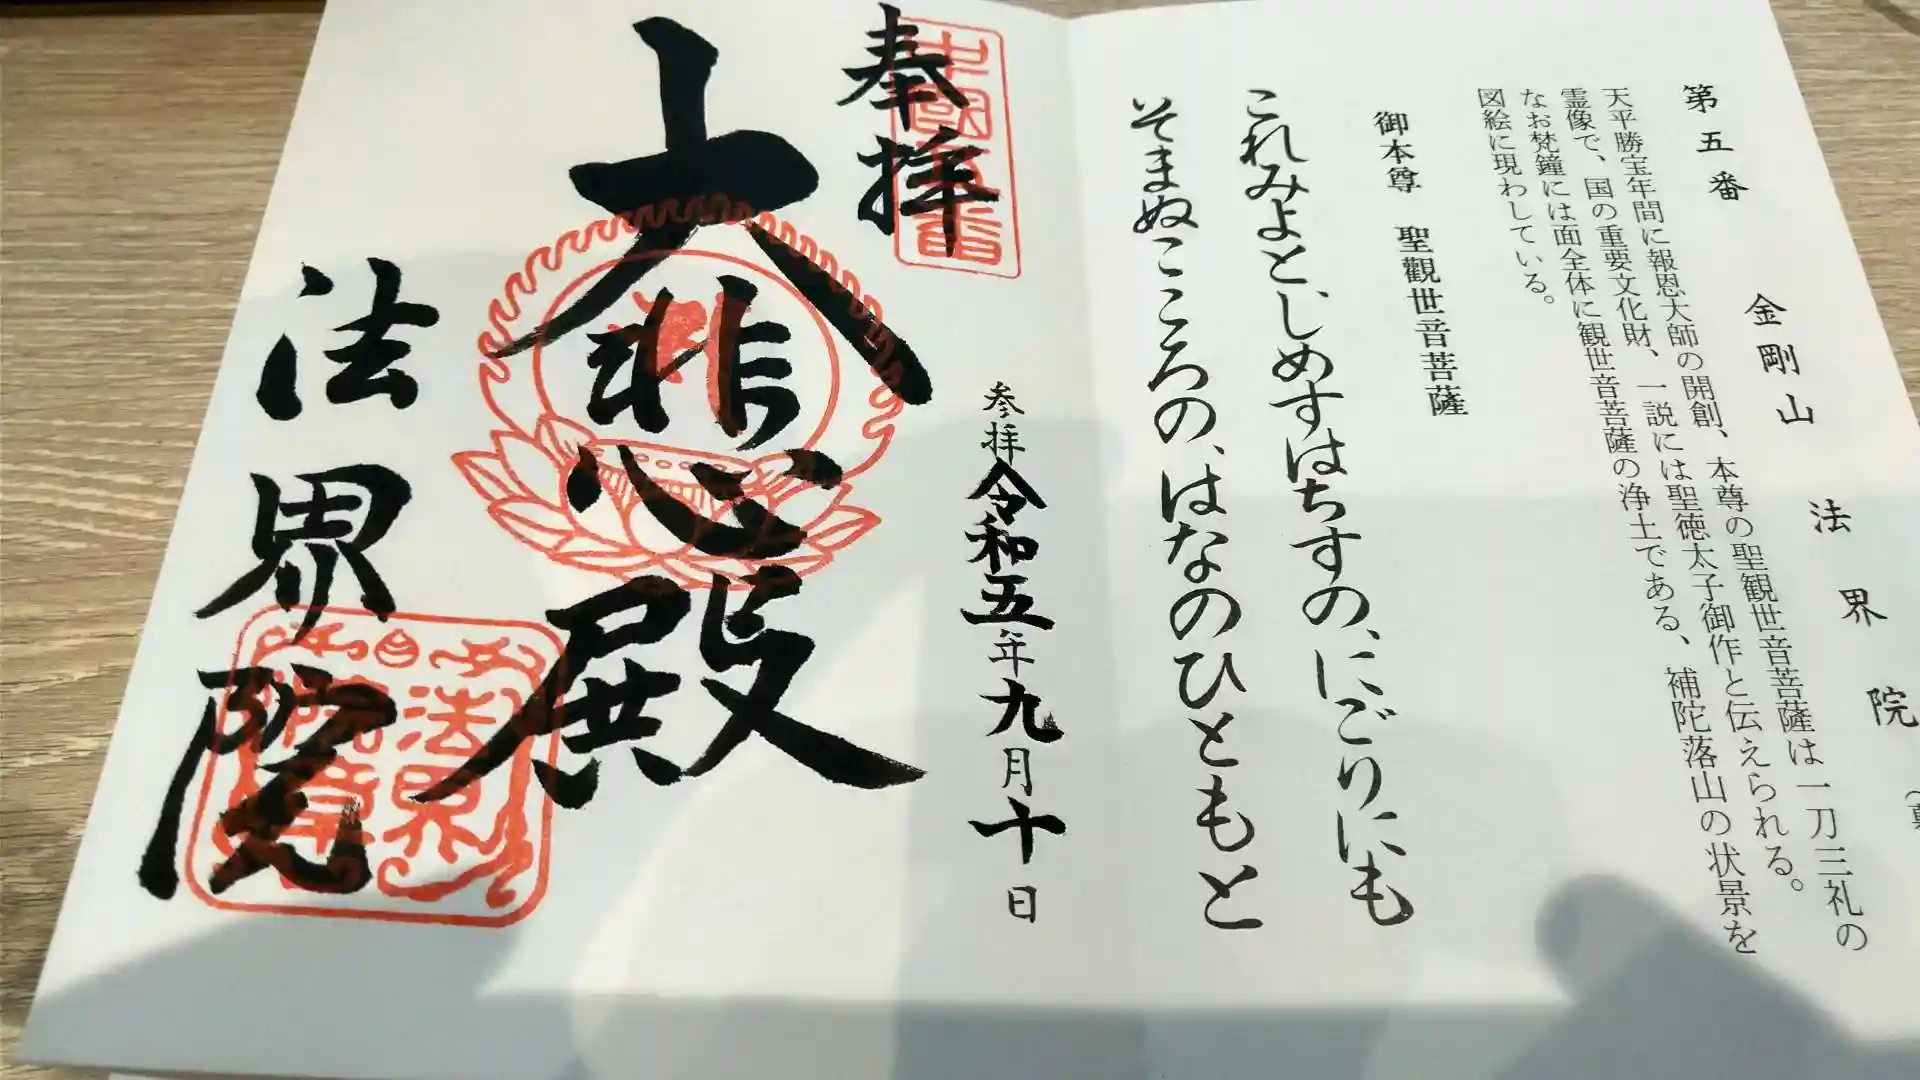 第五番 金剛山 法界院
天平勝宝年間に報恩大師の開創、本尊の聖観世音菩薩は一刀三礼の
霊像で、国の重要文化財、一説には聖徳太子御作と伝えられる。
なお梵鐘には面全体に観世音菩薩の浄土である、補陀落山の状景を
図絵に現わしている。
御本尊 聖觀世音菩薩
これみよと、しめすはちすの、にごりにも
そまぬこころの、はなのひともと
奉拝
中國五番
参拝令和五年九月十日
大悲心殿
法界院
法界
院章